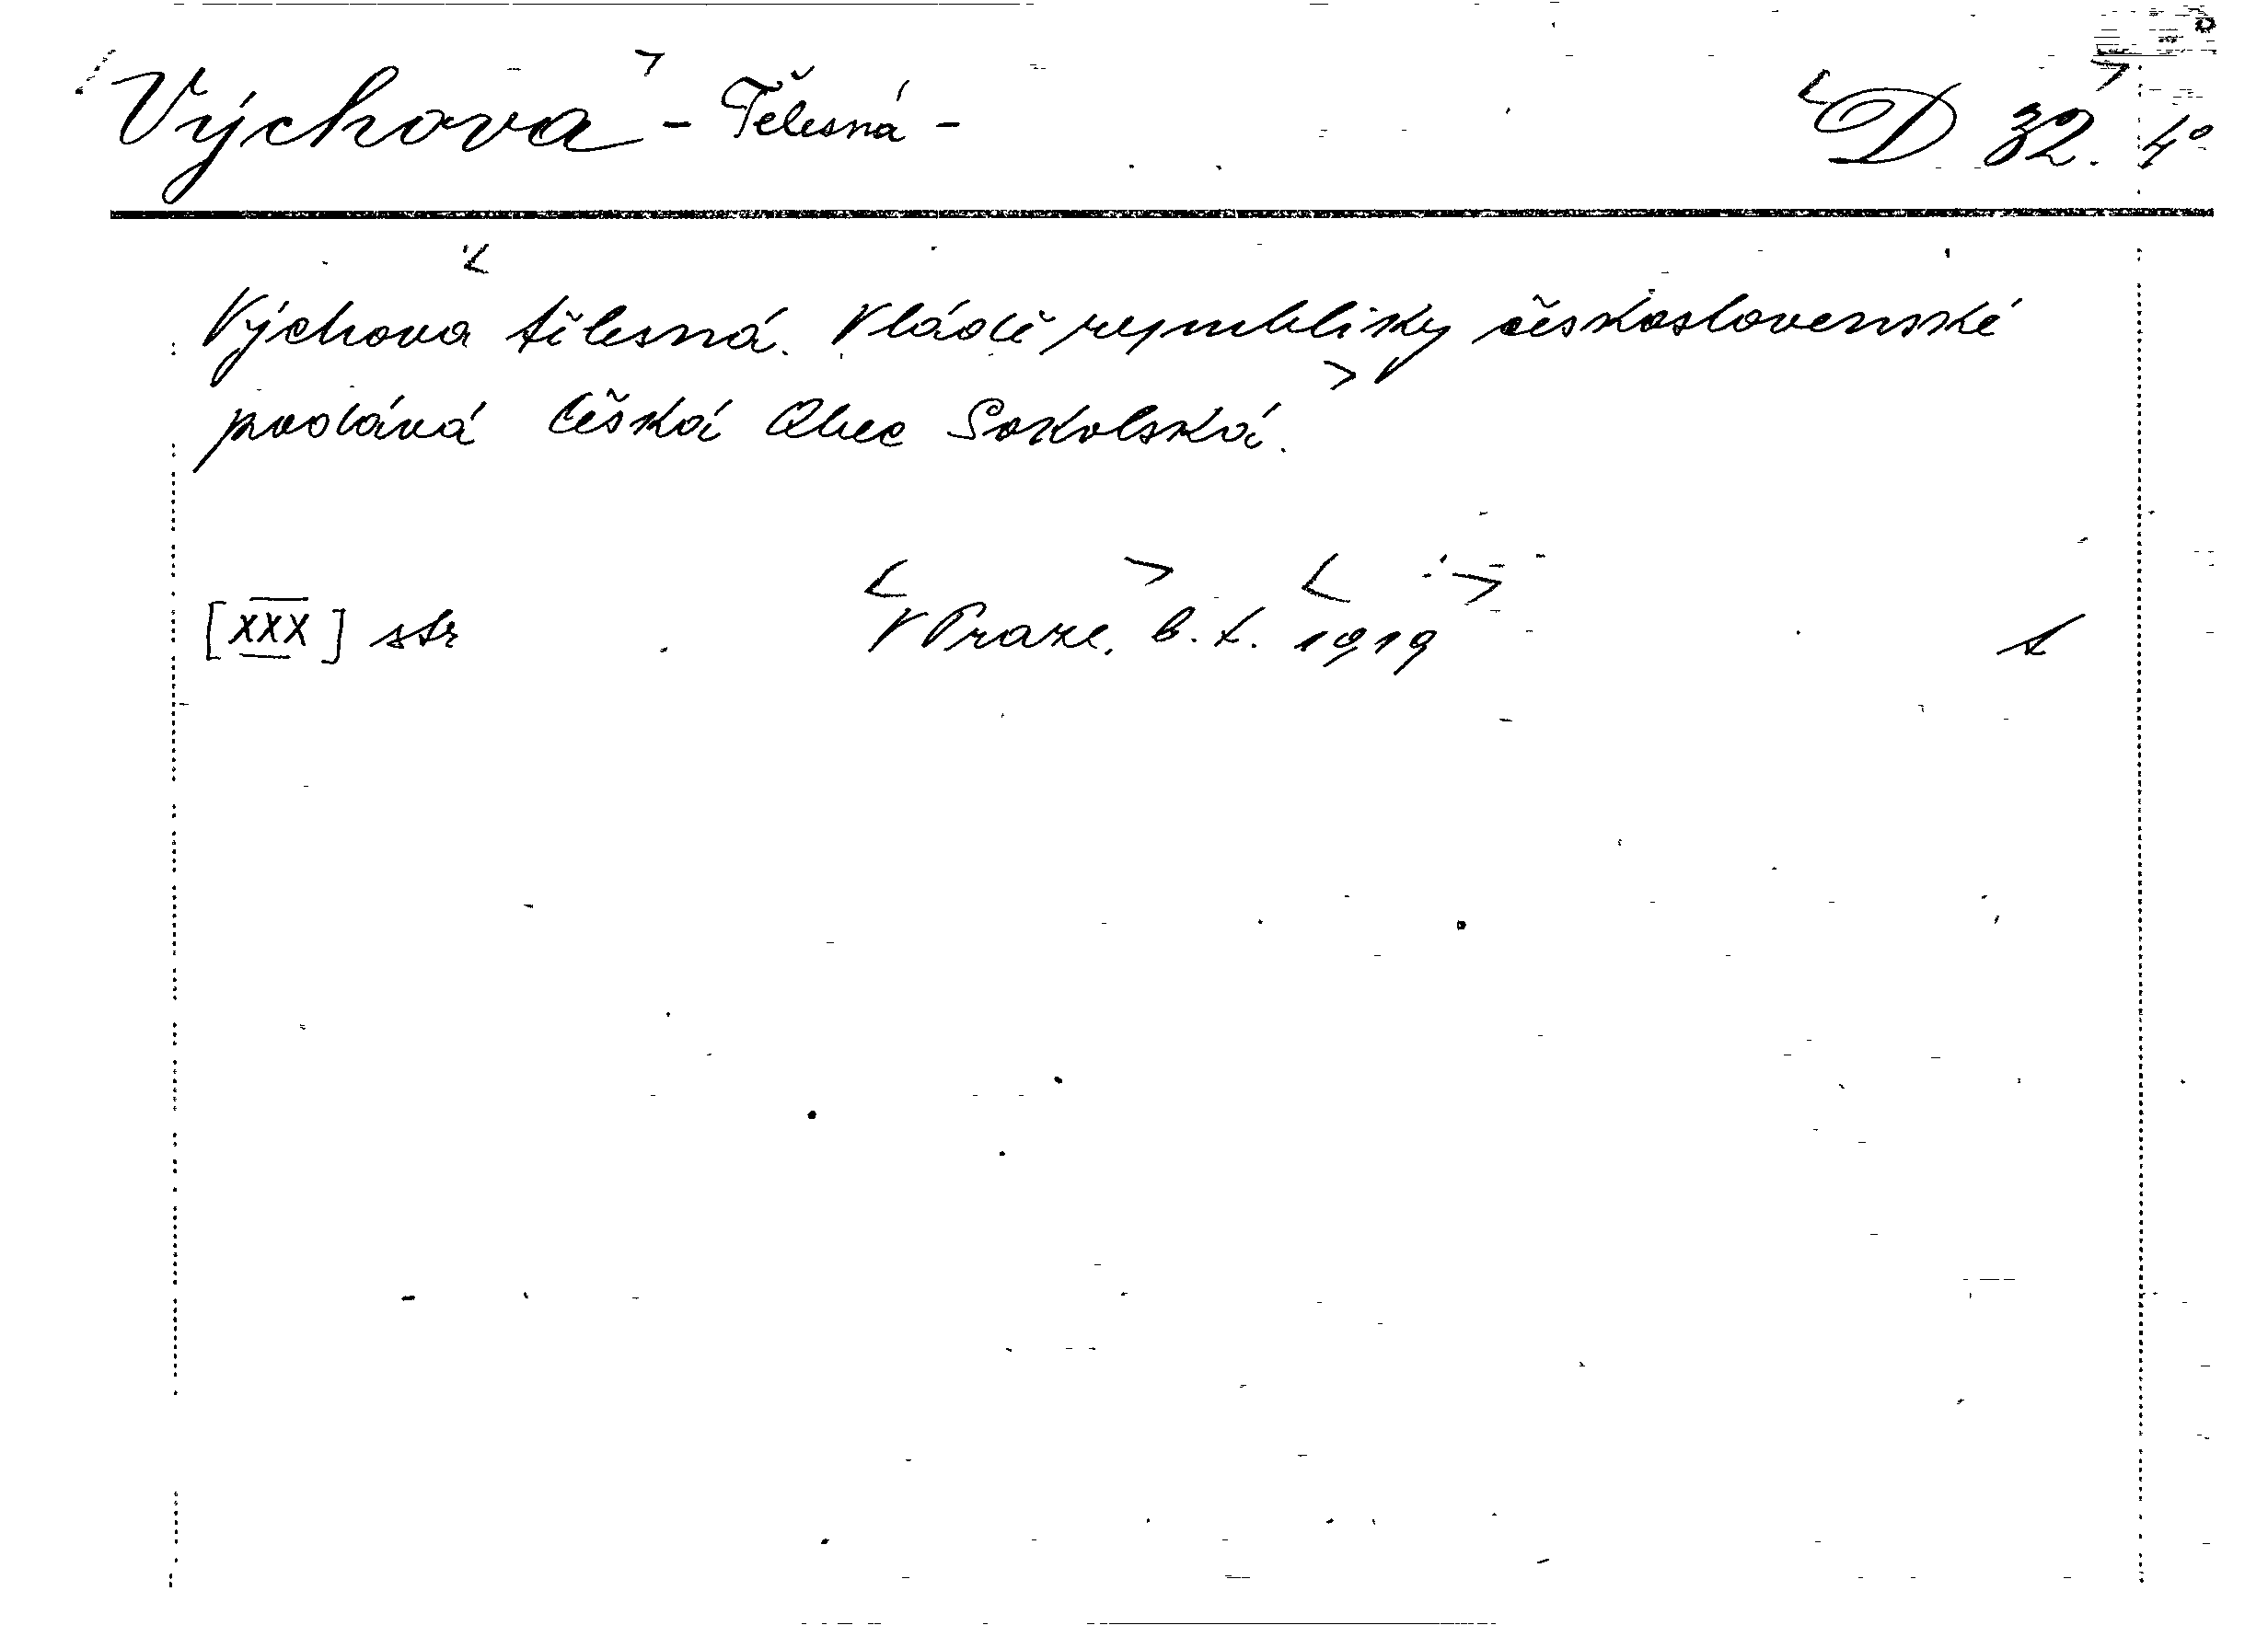 Výchova - Tělesná - D 32. 4°
Výchova tělesná. Vládě republiky československé
podává Česká Obec Sokolská.
[XXX] str V Praze, b. t. 1919 t